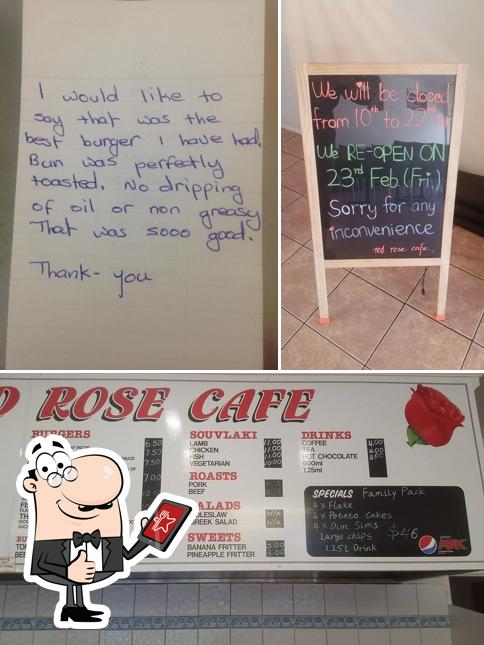 I would like to
say that was the
best burger I have had.
Bun was perfectly
toasted. No dripping
of oil or non greasy
That was sooo good.
Thank-you
We will be closed
from 10th to 22nd
We RE-OPEN ON
23rd Feb. (Fri.)
Sorry for any
inconvenience
-red rose cafe.
D ROSE CAFE
BURGERS
6.50
7.50
7.50
7.00
SOUVLAKI
LAMB 11.00
CHICKEN 11.00
FISH 11.00
VEGETARIAN 10.00
ROASTS
PORK
BEEF
SALADS
COLESLAW N/A
GREEK SALAD N/A
SWEETS
BANANA FRITTER
PINEAPPLE FRITTER
DRINKS
COFFEE 4.00
TEA
HOT CHOCOLATE
600ml
1.25ml
SPECIALS Family Pack
4 x Flake
4 x Potato Cakes
4 x Dim Sims
Large chips $46
1.25L Drink
pepsi
MAX